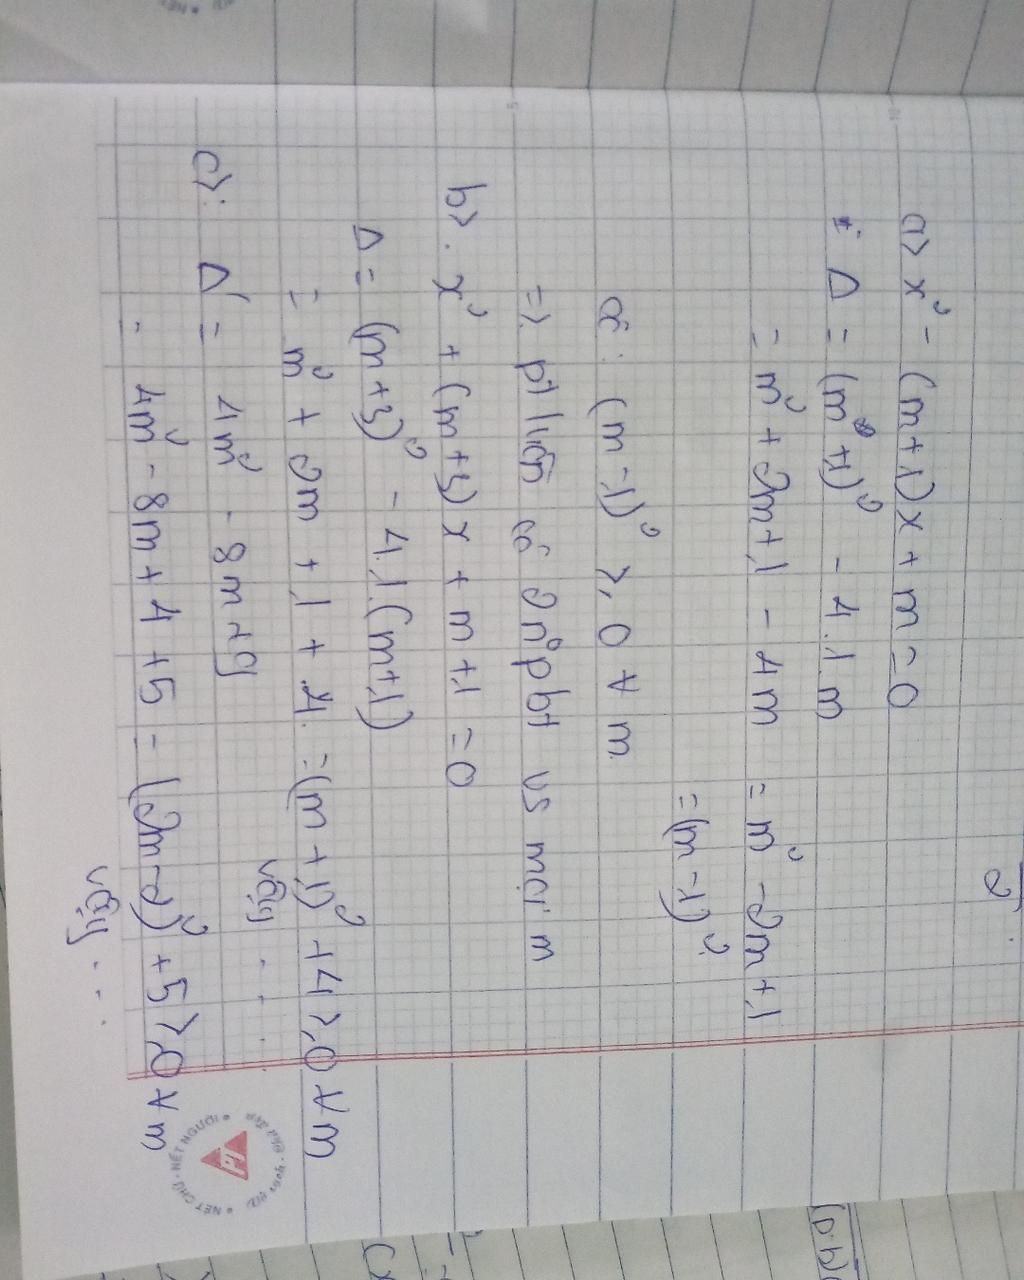 2
a> x² - (m+1)x + m = 0
* Δ = (m+1)² - 4.1.m
= m² + 2m+1 - 4m = m² - 2m+1
= (m-1)²
có: (m-1)² ≥ 0 ∀ m
=> pt luôn có 2n⁰pbt vs mọi m
b> . x² + (m+3)x + m+1 = 0
Δ = (m+3)² - 4.1.(m+1)
= m² + 2m + 1 + 4 = (m+1)² + 4 ≥ 0 ∀ m
vậy . . .
c>: Δ' = 4m² - 8m+9
= 4m² - 8m + 4 + 5 = (2m-2)² + 5 ≥ 0 ∀ m
vậy . . .
NÉT CHỮ - NẾT NGƯỜI